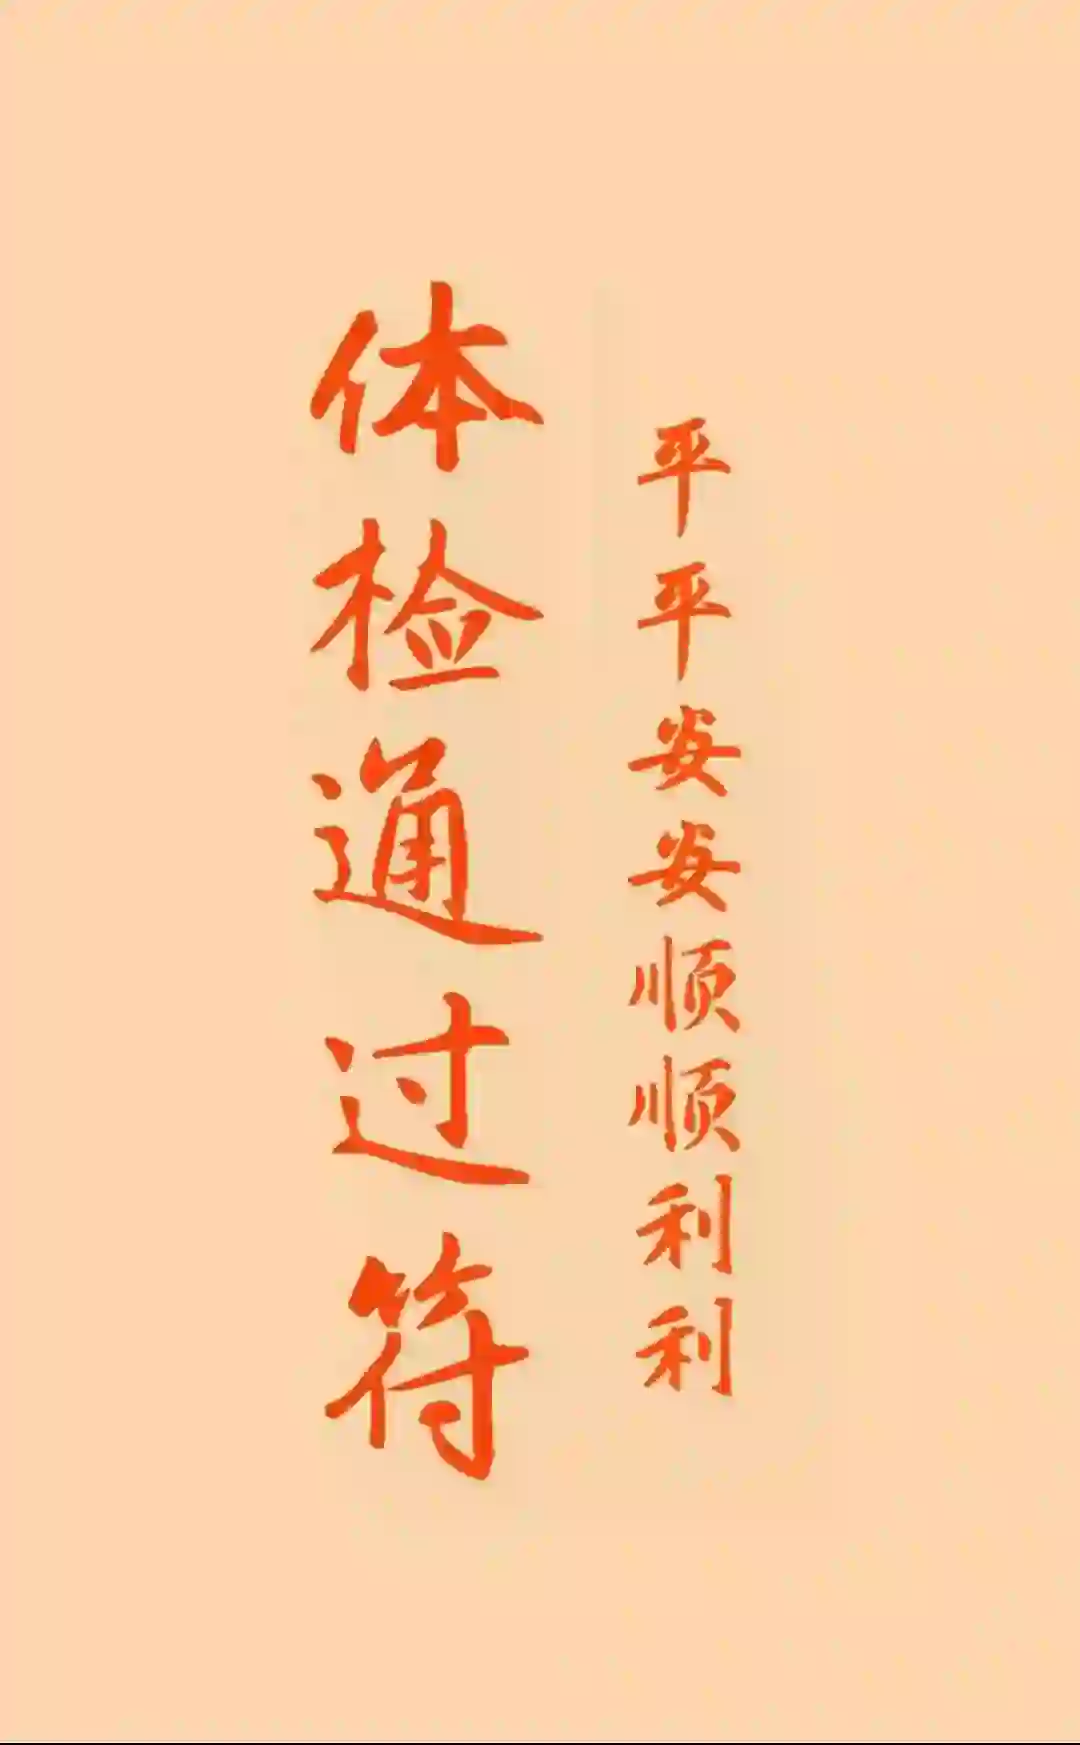 体检通过符
平平安安顺顺利利